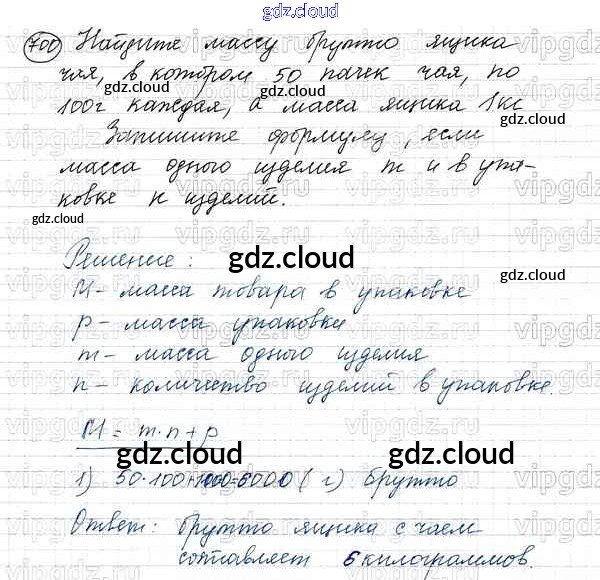 gdz.cloud
700 Найдите массу брутто ящика
чая, в котором 50 пачек чая, по
100г каждая, а масса ящика 1кг
Запишите формулу, если
масса одного изделия m и в упа-
ковке n изделий.
gdz.cloud
gdz.cloud
gdz.cloud
Решение:
M - масса товара в упаковке
p - масса упаковки
m - масса одного изделия
n - количество изделий в упаковке.
M = m·n+p
gdz.cloud
gdz.cloud
1) 50·100+1000=6000 (г) брутто
Ответ: брутто ящика с чаем
составляет 6 килограммов.
gdz.cloud
gdz.cloud